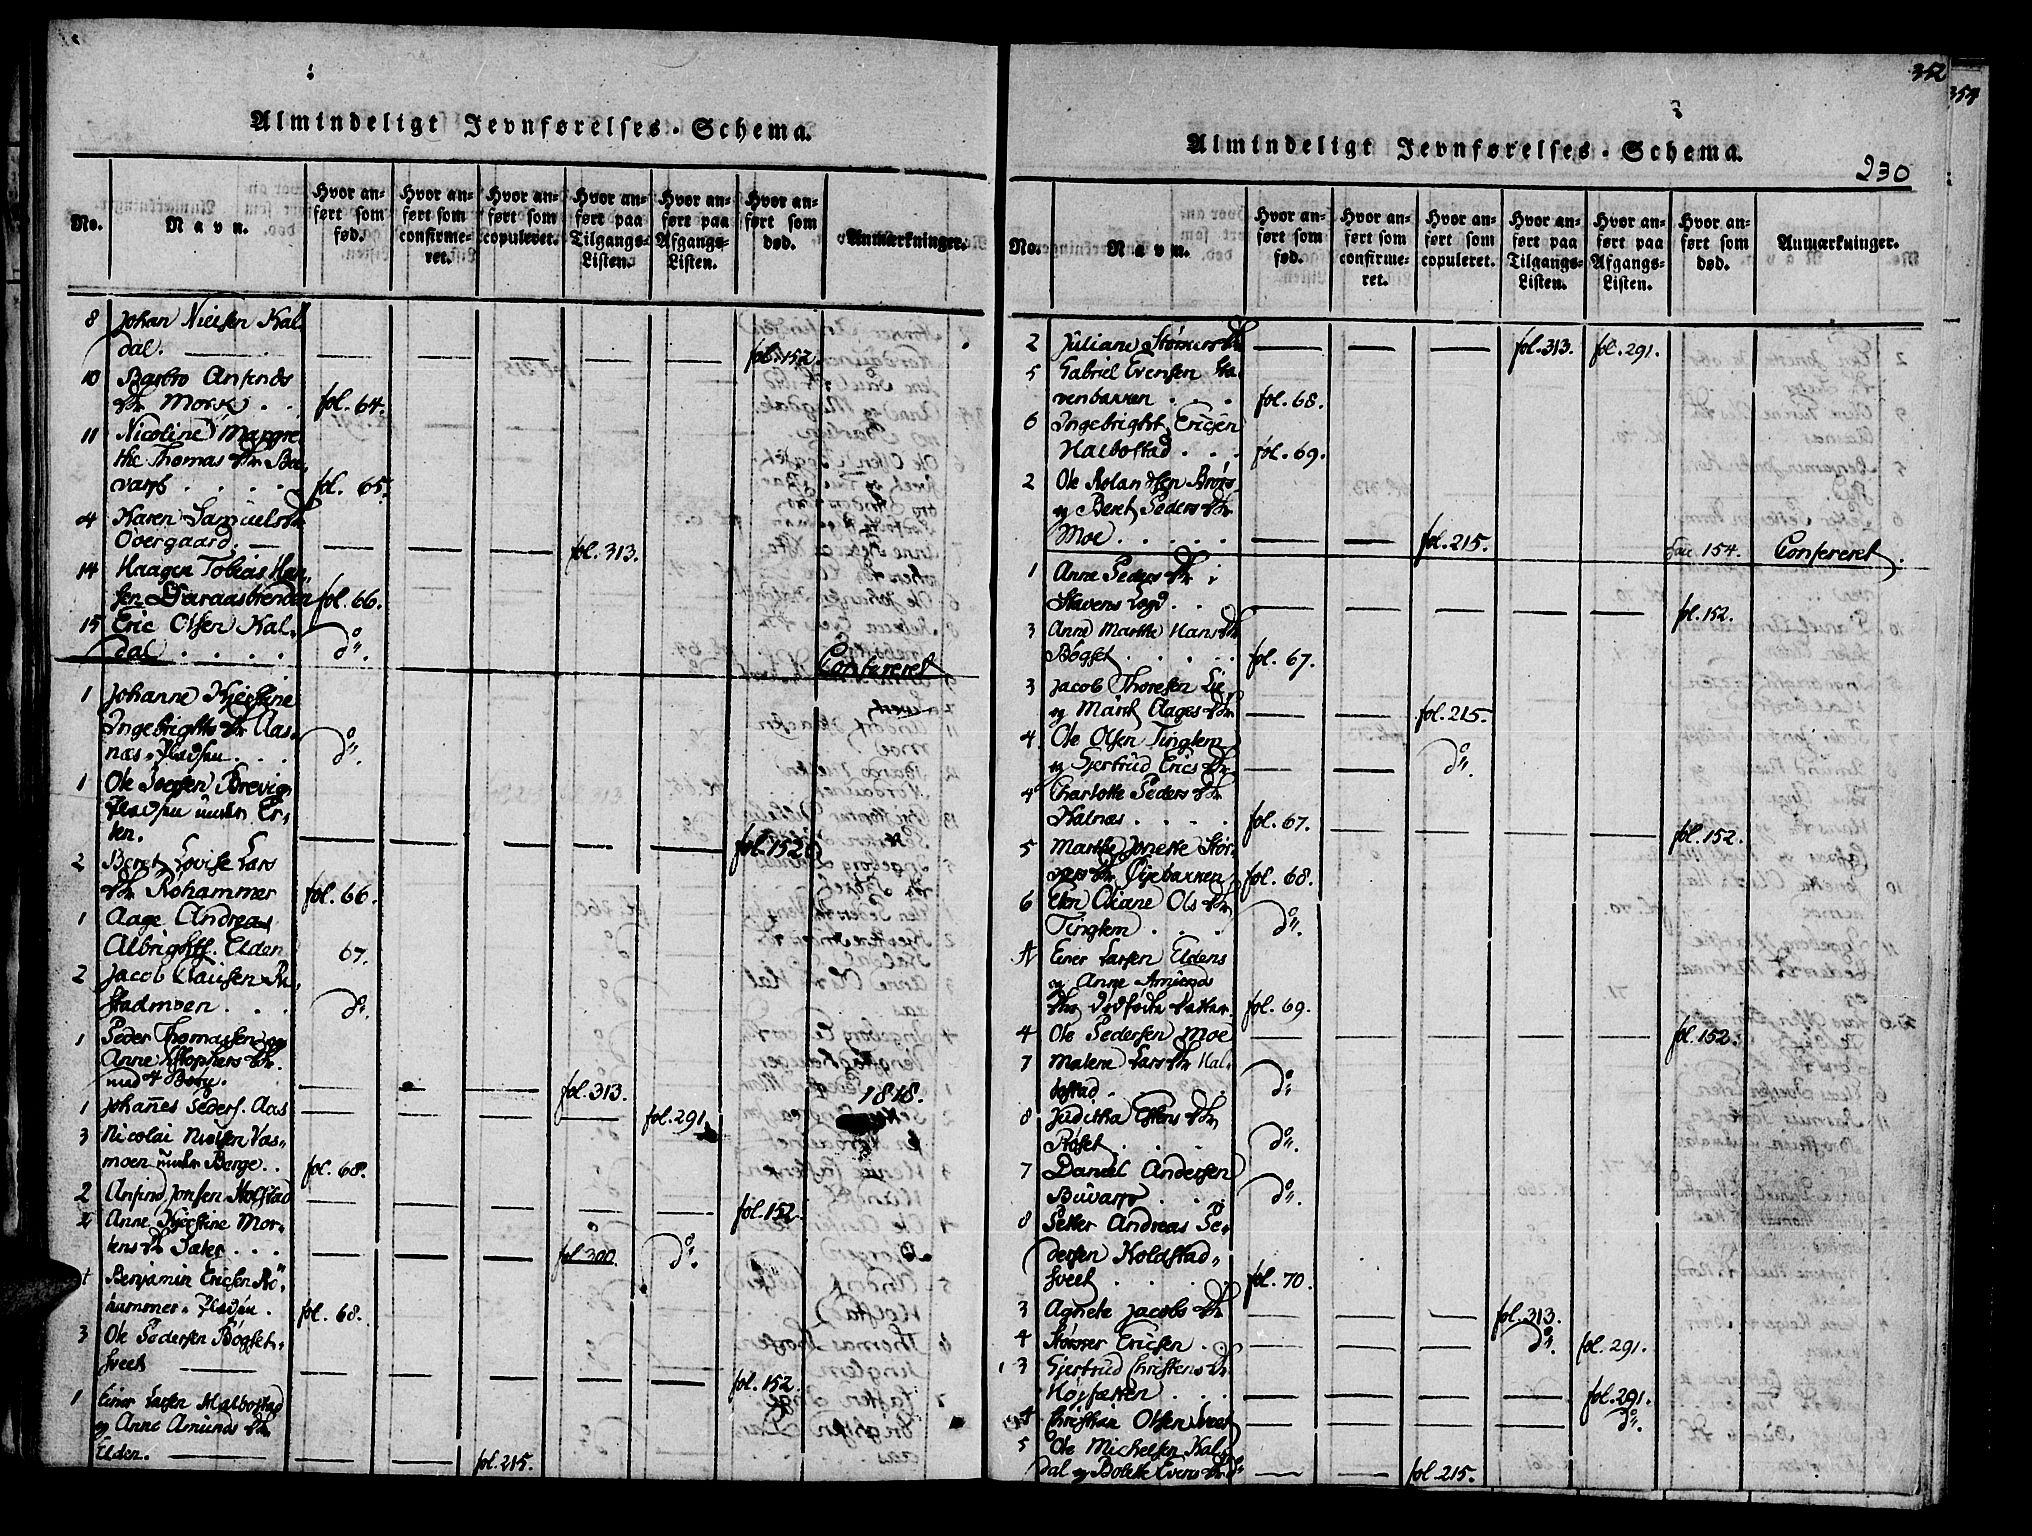 Almindeligt Jevnførelses-Schema.
No.
Navn.
Hvor an-
ført som
fød.
Hvor an-
ført som
confirme-
ret.
Hvor an-
ført som
copuleret.
Hvor an-
ført paa
Tilgangs-
Listen.
Hvor an-
ført paa
Afgangs-
Listen.
Hvor an-
ført som
død.
Anmærkninger.
8 Johan Nielsen Kal
dal. fol. 152.
10 Barbro Anfinds
dtr Mork . . fol. 64.
11 Nicoline Margre
the Thomas dtr
. . . . fol. 65.
4 Karen Samuels dtr
Overgaard. fol. 313.
14 Haagen Tobias Han-
sen fol. 66.
15 Eric Olsen Kal-
dal . . . . do.
Confereret
1 Johanne Kjerstine
Ingebrights dtr Aas-
næs-Pladsen . . . do.
1 Ole Brevig
Pladsen under
fol. 152
2 Beret Lovise Lars
dtr Rohammer fol. 66.
1 Aage Andreas
Albrights. Elden 67.
2 Jacob Clausen
Stadmoen . . . do.
1 Peder Thomassen og
Anne dtr.
med 4 Børn. fol. 313. 1818.
1 Johannes Peders. Aas fol. 291
3 Nicolai Nielsen
moen under Berge . . fol. 68.
2 Anfind Jonsen Holstad fol. 152.
2 Anne Kjerstine Mor-
tens dtr Sæter . . . fol. 300. do.
Benjamin Ericsen Ro-
hammer-Pladsen . fol. 68.
3 Ole Pedersen Bøgset-
sveet fol. 152.
1 Einer Larsen Halbostad
og Anne Amunds dtr
Elden. fol. 215.
352
354
Almindeligt Jevnførelses-Schema.
230
No.
Navn.
Hvor an-
ført som
fød.
Hvor an-
ført som
confirme-
ret.
Hvor an-
ført som
copuleret.
Hvor an-
ført paa
Tilgangs-
Listen.
Hvor an-
ført paa
Afgangs-
Listen.
Hvor an-
ført som
død.
Anmærkninger.
2 Juliane fol. 313. fol. 291.
5 Gabriel Evensen Sta-
venbakken . . . fol. 68.
6 Ingebright Ericsen
Halbostad . . . fol. 69.
2 Ole Rolandsen
og Beret Peders dtr
Moe . . . . . fol. 215. 154. Confereret.
1 Anne Peders dtr
Stavens Logd . . fol. 152.
3 Anne Marthe Hans dtr
Bøgset . . . . fol. 67.
3 Jacob Thoresen Lie
og Marit Aages dtr fol. 215.
4. Ole Olsen Tinglem
og Gjertrud Erics dtr do.
4 Charlotte Peders dtr
Kalnæs . . . . fol. 67. fol. 152.
5 Marthe Jonette Stør-
dtr fol. 68.
6 Elen Oliane Ols dtr
Tinglem . . . do.
Einer Larsen Eldens
og Anne Amunds
dtrs dødfødte datter. fol. 69.
4 Ole Pedersen Moe fol. 152.
7 Malene Lars dtr Hal-
bostad . . do.
8 Juditha Estens dtr
Røset . . . . do.
7 Daniel Andersen
Buvarp . . . do.
8 Petter Andreas Pe-
dersen Holdstad-
sveet . . . . fol. 70.
3 Agnete Jacobs dtr fol. 313.
4 Størker Ericsen . do. fol. 291.
3 Gjertrud Christens dtr
Højsætten . . . fol. 291.
4 Christian Olsen Sveet do.
5 Ole Michelsen Kal-
dal og Bolette Evens dtr fol. 215.